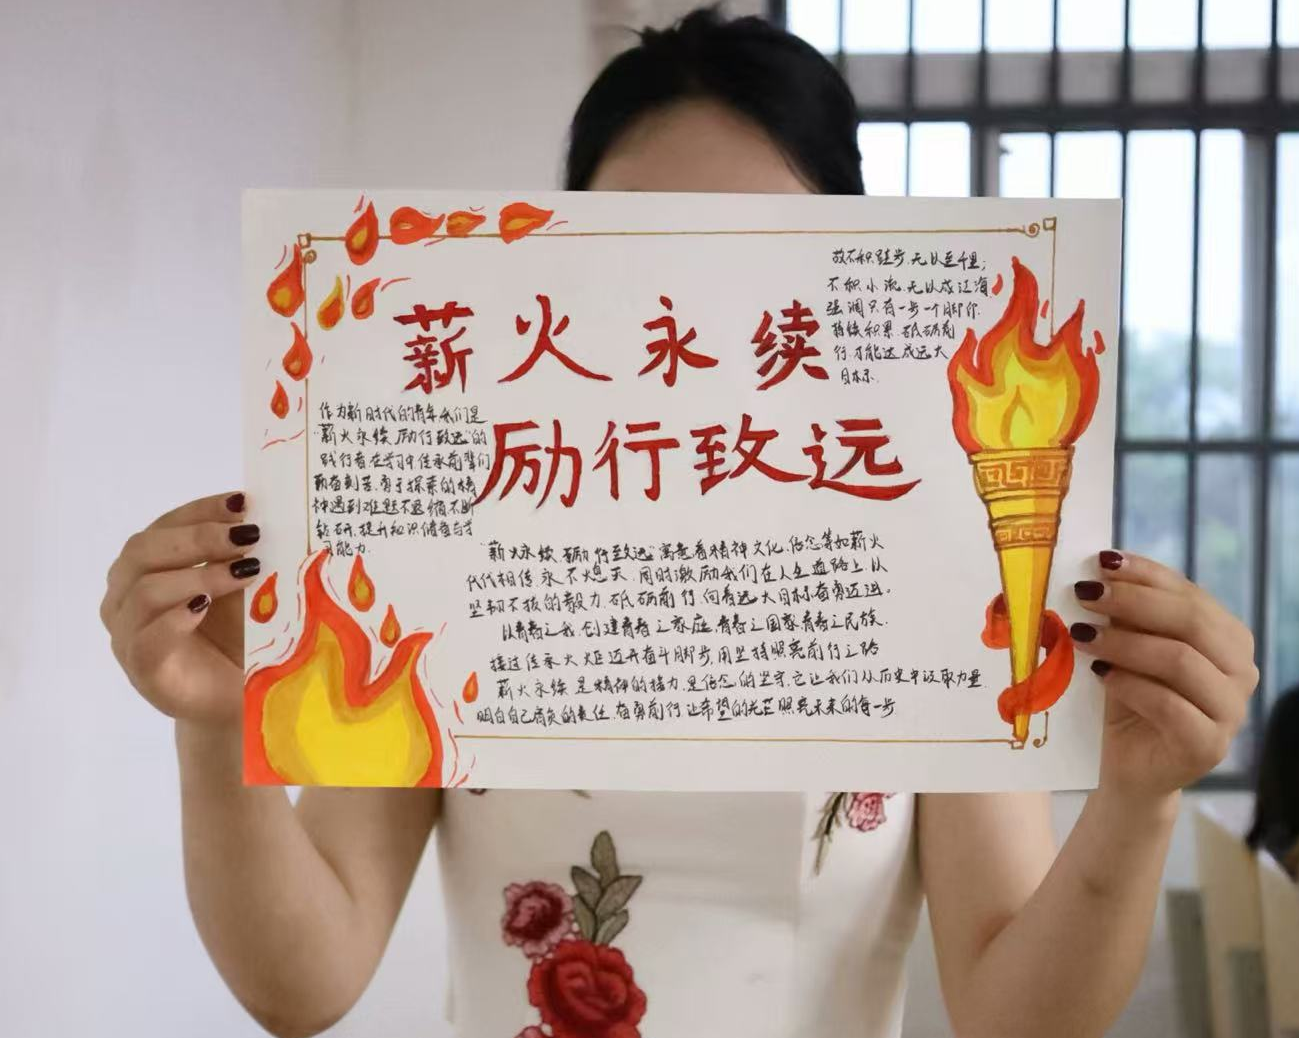 薪火永续
励行致远
故不积跬步,无以至千里;
不积小流,无以成江海
强调只有一步一个脚印
持续积累,砥砺前
行,才能达成远大
目标.
作为新时代的青年我们是
“薪火永续,励行致远”的
践行者在学习中传承前辈们
勤奋刻苦,勇于探索的精
神遇到难题不退缩不断
钻研,提升知识储备与学
习能力.
“薪火永续,励行致远”寓意着精神文化,信念等如薪火
代代相传永不熄灭,同时激励我们在人生道路上,以
坚韧不拔的毅力,砥砺前行,向着远大目标奋勇迈进。
以青春之我,创建青春之家庭,青春之国家,青春之民族.
接过传承火炬迈开奋斗脚步,用坚持照亮前行之路
薪火永续,是精神的接力,是信念的坚守,它让我们从历史中汲取力量
明白自己肩负的责任,奋勇前行让希望的光芒照亮未来的每一步